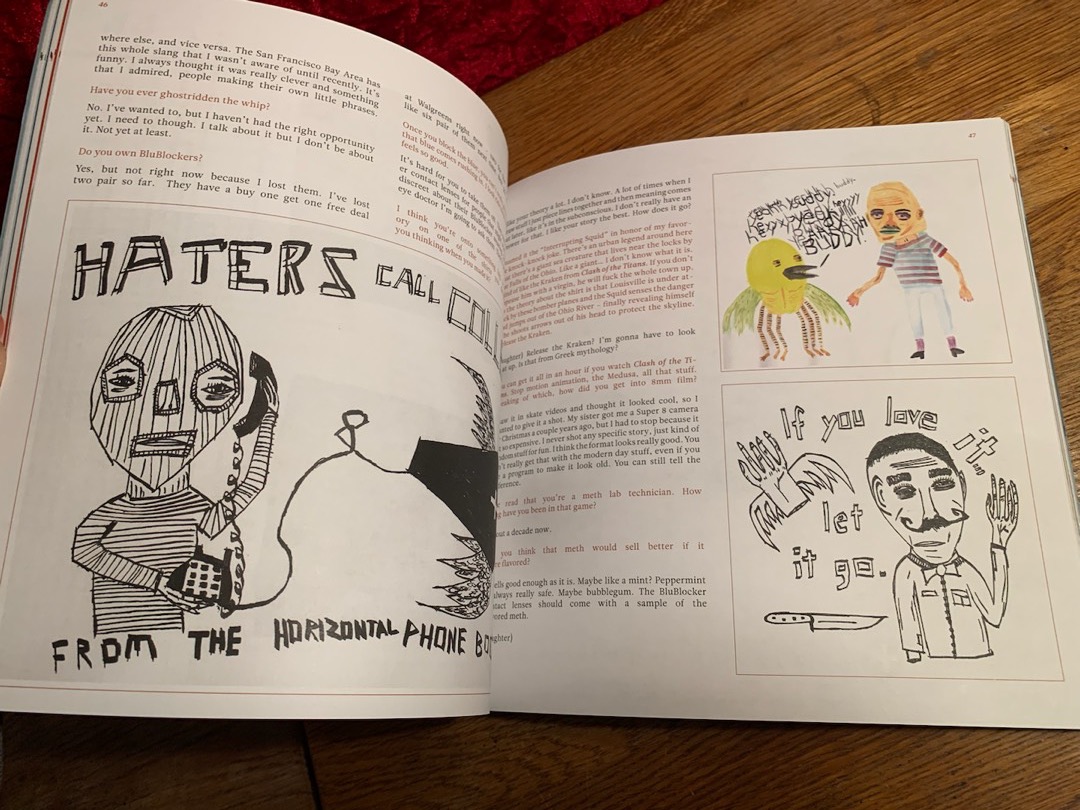 46
where else, and vice versa. The San Francisco Bay Area has
this whole slang that I wasn't aware of until recently. It's
funny. I always thought it was really clever and something
that I admired, people making their own little phrases.
Have you ever ghostridden the whip?
No. I've wanted to, but I haven't had the right opportunity
yet. I need to though. I talk about it but I don't be about
it. Not yet at least.
Do you own BluBlockers?
Yes, but not right now because I lost them. I've lost
two pair so far. They have a buy one get one free deal
at Walgreens right
like six pair of them
Once you block the
that blue comes rushing in.
feels so good.
It's hard for you to take
er contact lenses for people
discreet about their
eye doctor I'm going to ask
I think you're onto
ory on one of the
you thinking when you made
HATERS CALL
FROM THE HORIZONTAL PHONE
47
your theory a lot. I don't know. A lot of times when I
stuff I just piece lines together and then meaning comes
later, like it's in the subconscious. I don't really have an
for that. I like your story the best. How does it go?
it the "Interrupting Squid" in honor of my favor-
knock, knock joke. There's an urban legend around here
there's a giant sea creature that lives near the locks by
Falls of the Ohio. Like a giant... I don't know what it is.
of like the Kraken from Clash of the Titans. If you don't
him with a virgin, he will fuck the whole town up.
the theory about the shirt is that Louisville is under at-
by these bomber planes and the Squid senses the danger
jumps out of the Ohio River – finally revealing himself
shoots arrows out of his head to protect the skyline.
the Kraken.
Release the Kraken? I'm gonna have to look
up. Is that from Greek mythology?
can get it all in an hour if you watch Clash of the Ti-
Stop motion animation, the Medusa, all that stuff.
of which, how did you get into 8mm film?
it in skate videos and thought it looked cool, so I
to give it a shot. My sister got me a Super 8 camera
Christmas a couple years ago, but I had to stop because it
so expensive. I never shot any specific story, just kind of
stuff for fun. I think the format looks really good. You
really get that with the modern day stuff, even if you
a program to make it look old. You can still tell the
read that you're a meth lab technician. How
have you been in that game?
a decade now.
you think that meth would sell better if it
flavored?
good enough as it is. Maybe like a mint? Peppermint
always really safe. Maybe bubblegum. The BluBlocker
lenses should come with a sample of the
meth.
If you love it...
let
it go.